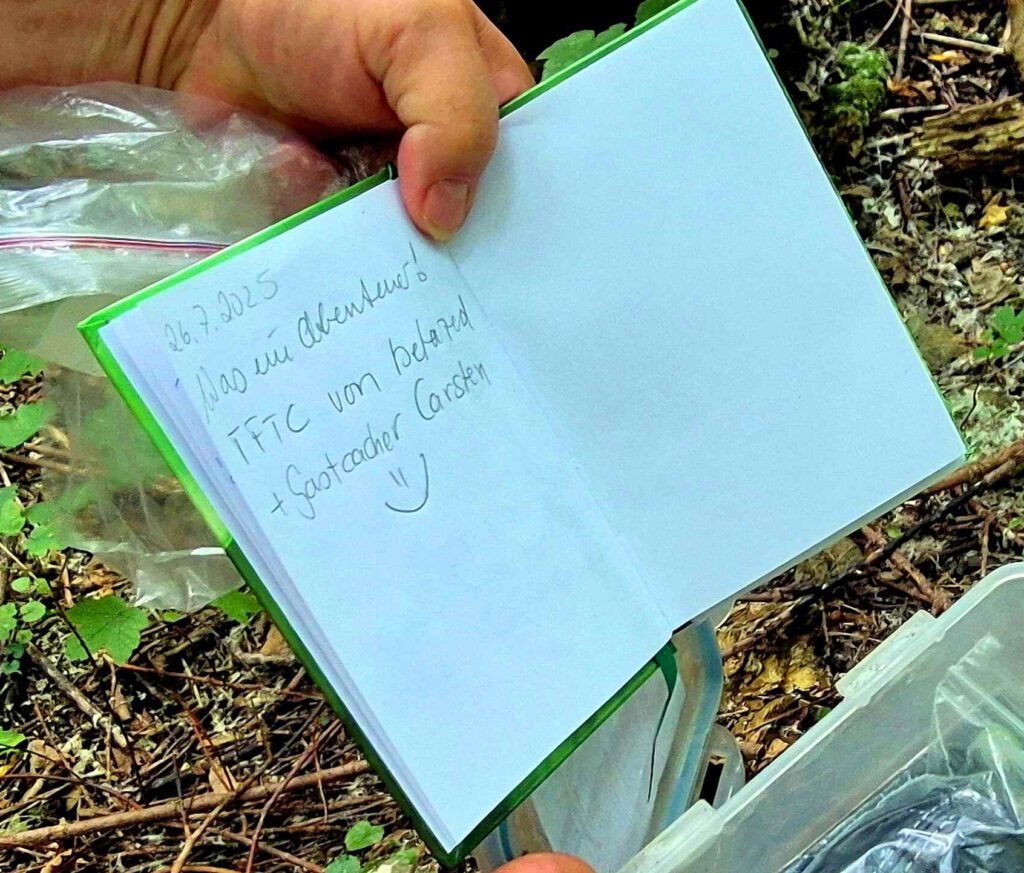 26.7.2025
Was ein Abenteuer!
TFTC von betared
+ Gastcacher Carsten